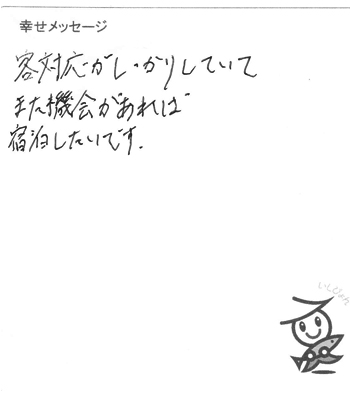 幸せメッセージ
客対応がしっかりしていて
また機会があれば
宿泊したいです.